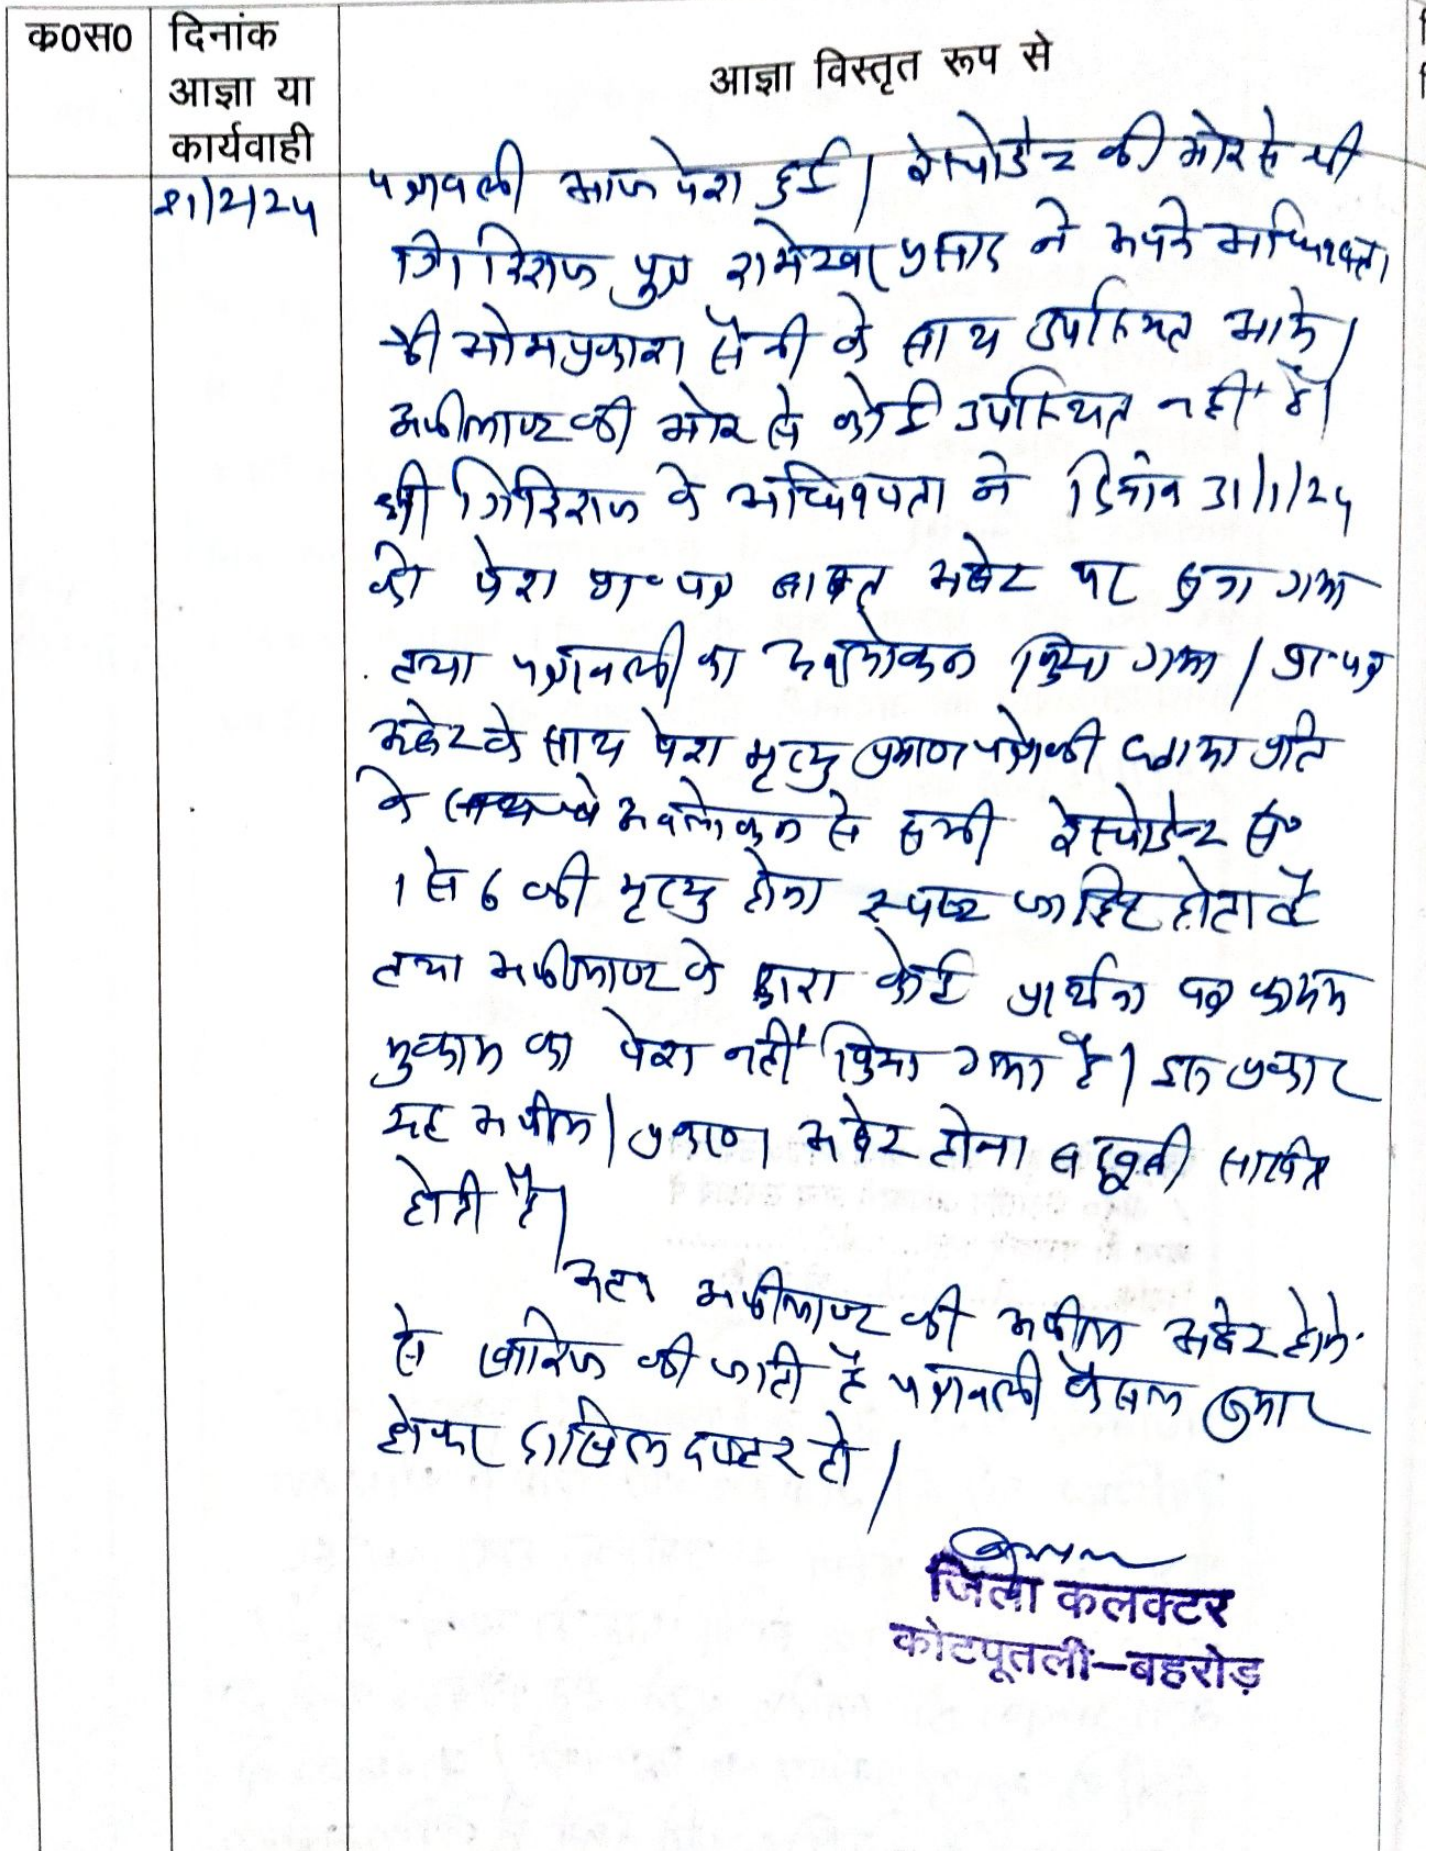 क0स0
दिनांक
आज्ञा या
कार्यवाही
आज्ञा विस्तृत रूप से
21/2/25
पत्रावली आज पेश हुई। रेस्पोडेन्ट की ओर से श्री
गिरिराज पुत्र रामेश्वर प्रसाद ने अपने अधिवक्ता
श्री ओमप्रकाश सैनी के साथ उपस्थित आये।
अपीलाण्ट की ओर से कोई उपस्थित नहीं है।
श्री गिरिराज के अधिवक्ता ने दिनांक 31/1/25
को पेश प्रा० पत्र बाबत अबेट पर सुना गया
तथा पत्रावली का अवलोकन किया गया। प्रा० पत्र
अबेट के साथ पेश मृत्यु प्रमाण पत्रो की छाया प्रति
के अवलोकन से सभी रेस्पोडेन्ट सं०
1 से 6 की मृत्यु होना स्पष्ट जाहिर होता है
तथा अपीलाण्ट के द्वारा कोई प्रार्थना पत्र कायम
मुकाम का पेश नहीं किया गया है। इस प्रकार
यह अपील / प्रकरण अबेट होना बखूबी साबित
होती है।
अतः अपीलाण्ट की अपील अबेट होने
से खारिज की जाती है पत्रावली फैसल शुमार
होकर दाखिल दफ्तर हो।
जिला कलक्टर
कोटपूतली–बहरोड़